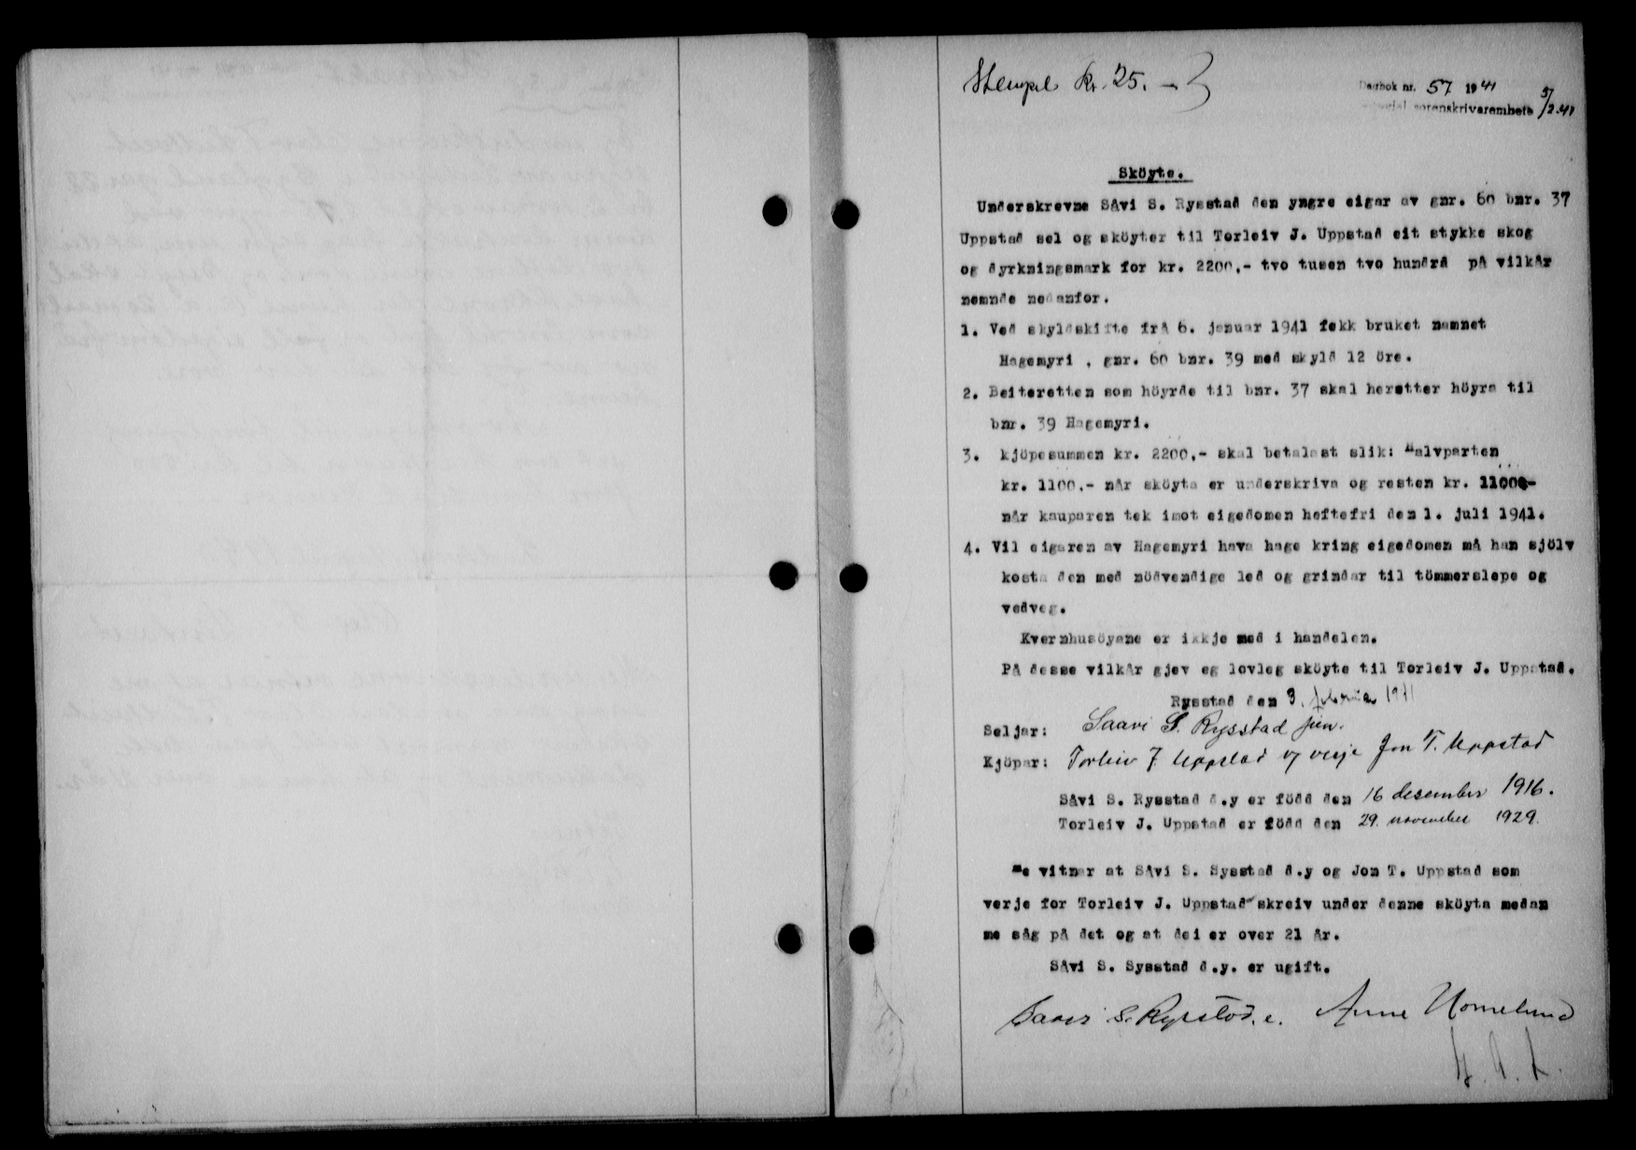 Stempel Kr. 25. -
Dagbok nr. 57 1941
sorenskrivarembete 5/2.41
Sköyte.
Underskrevne Såvi S. Rysstad den yngre eigar av gnr. 60 bnr. 37
Uppstad sel og sköyter til Torleiv J. Uppstad eit stykke skog
og dyrkningsmark for kr. 2200,- tvo tusen tvo hundrd på vilkår
nemnde nedanfor.
1. Ved skyldskifte frå 6. januar 1941 fekk bruket namnet
Hagemyri , gnr. 60 bnr. 39 med skyld 12 öre.
2. Beiteretten som höyrde til bnr. 37 skal heretter höyra til
bnr. 39 Hagemyri.
3. kjöpesummen kr. 2200,- skal betalast slik: Halvparten
kr. 1100.- når sköyta er underskriva og resten kr. 1100.-
når kauparen tek imot eigedomen heftefri den 1. juli 1941.
4. Vil eigaren av Hagemyri hava hage kring eigedomen må han sjölv
kosta den med nödvendige led og grindar til tömmerslepe og
vedveg.
Kvernhusöyane er ikkje med i handelen.
På desse vilkår gjev eg lovleg sköyte til Torleiv J. Uppstad.
Rysstad den 3. februar 1941
Seljar: Saavi S. Rysstad jun.
Kjöpar: Torleiv J. Uppstad og verje Jon T. Uppstad
Såvi S. Rysstad d.y er född den 16 desember 1916.
Torleiv J. Uppstad er född den 29. november 1929.
Me vitnar at Såvi S. Sysstad d.y og Jon T. Uppstad som
verje for Torleiv J. Uppstad skreiv under denne sköyta medan
me såg på det og at dei er over 21 år.
Såvi S. Sysstad d.y. er ugift.
Saavi S. Rysstad. e. Anne Homelund